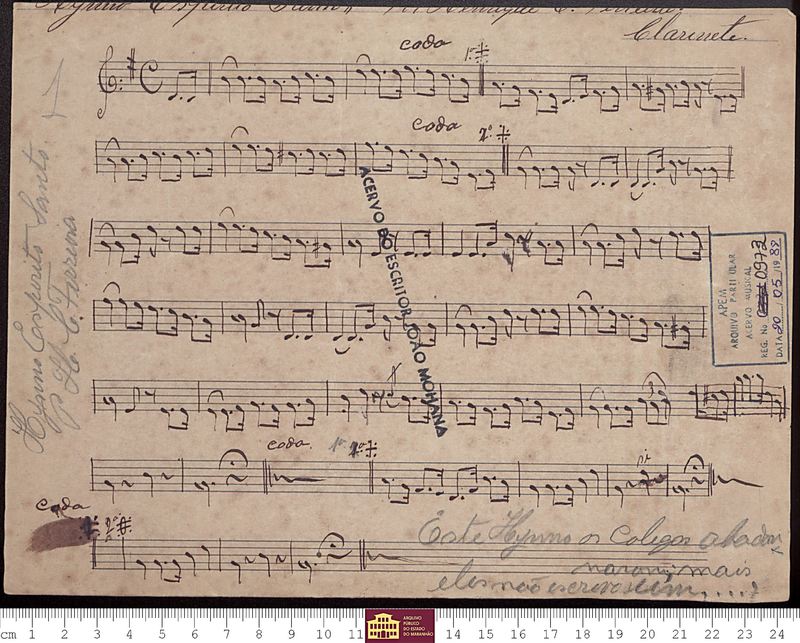 Hymno Espirito Santo,
Clarinete.
coda
1ª
coda
2ª
Hymno Espirito Santo.
ACERVO DO ESCRITOR JOÃO MOHANA
APEM
ARQUIVO PARTICULAR
ACERVO MUSICAL
REG. No 0973
DATA 20 / 05 / 1989
coda. 1ª 2ª
coda
2ª
Este Hymno os Colegas
mais
eles não
cm 1 2 3 4 5 6 7 8 9 10 11 14 15 16 17 18 19 20 21 22 23 24
ARQUIVO
PÚBLICO
DO ESTADO
DO MARANHÃO